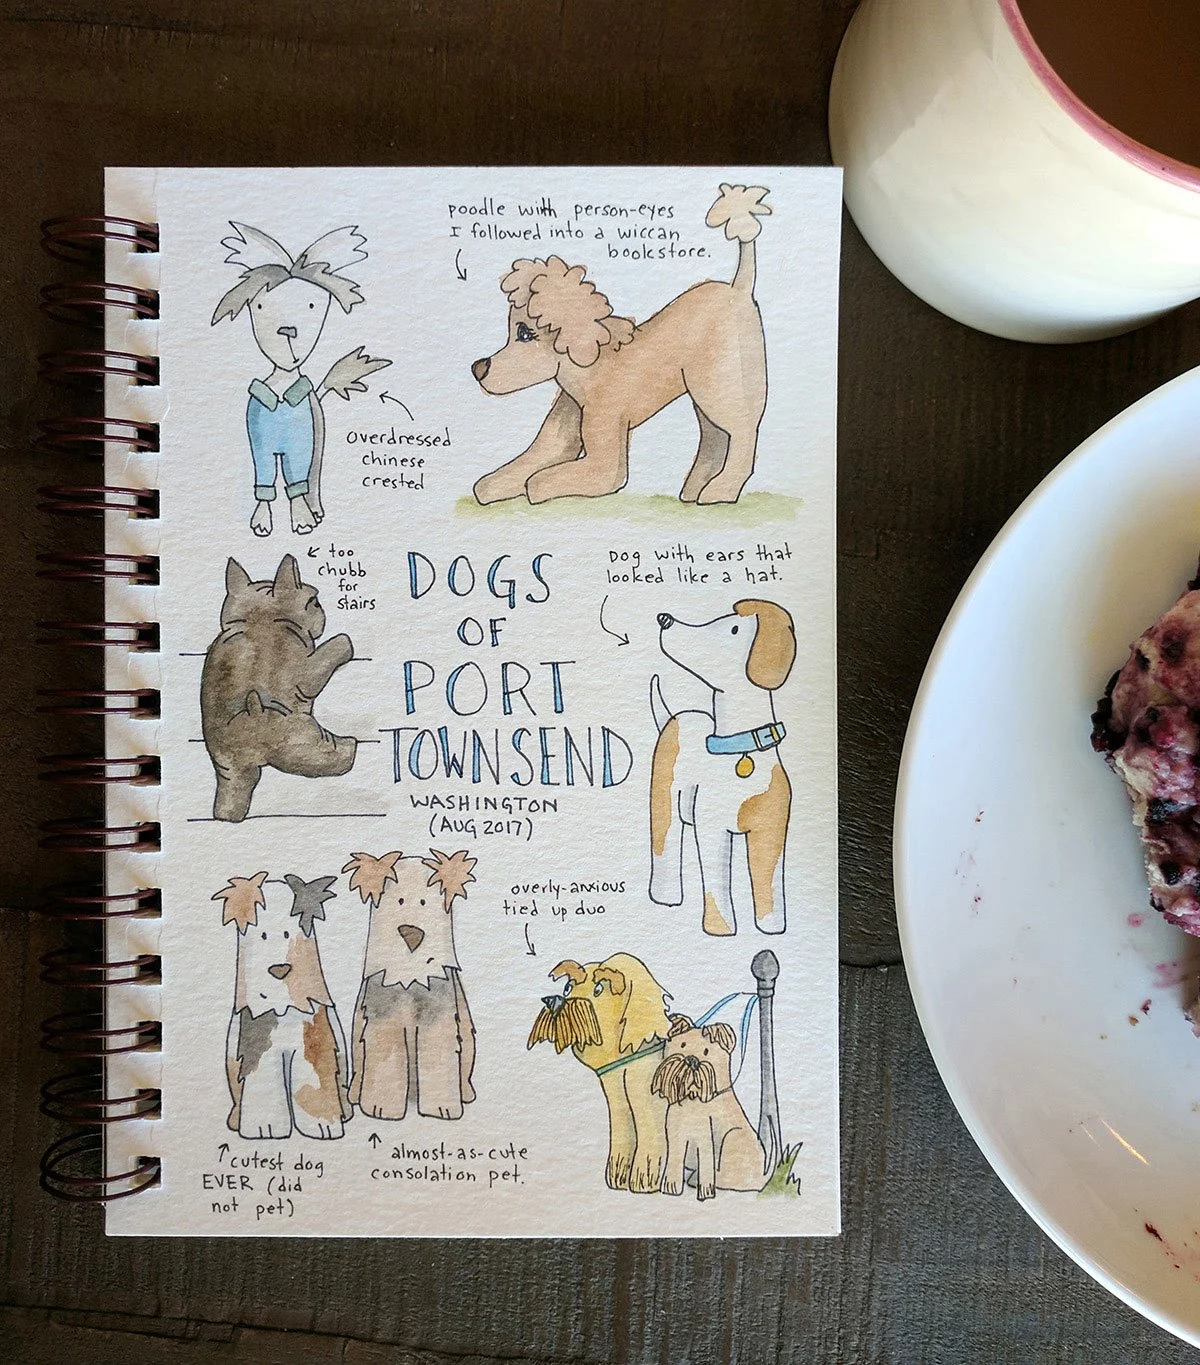 poodle with person-eyes
I followed into a wiccan
bookstore.
overdressed
chinese
crested
too
chubb
for
stairs
DOGS
OF
PORT
TOWNSEND
WASHINGTON
(AUG 2017)
Dog with ears that
looked like a hat.
overly-anxious
tied up duo
cutest dog
EVER (did
not pet)
almost-as-cute
consolation pet.